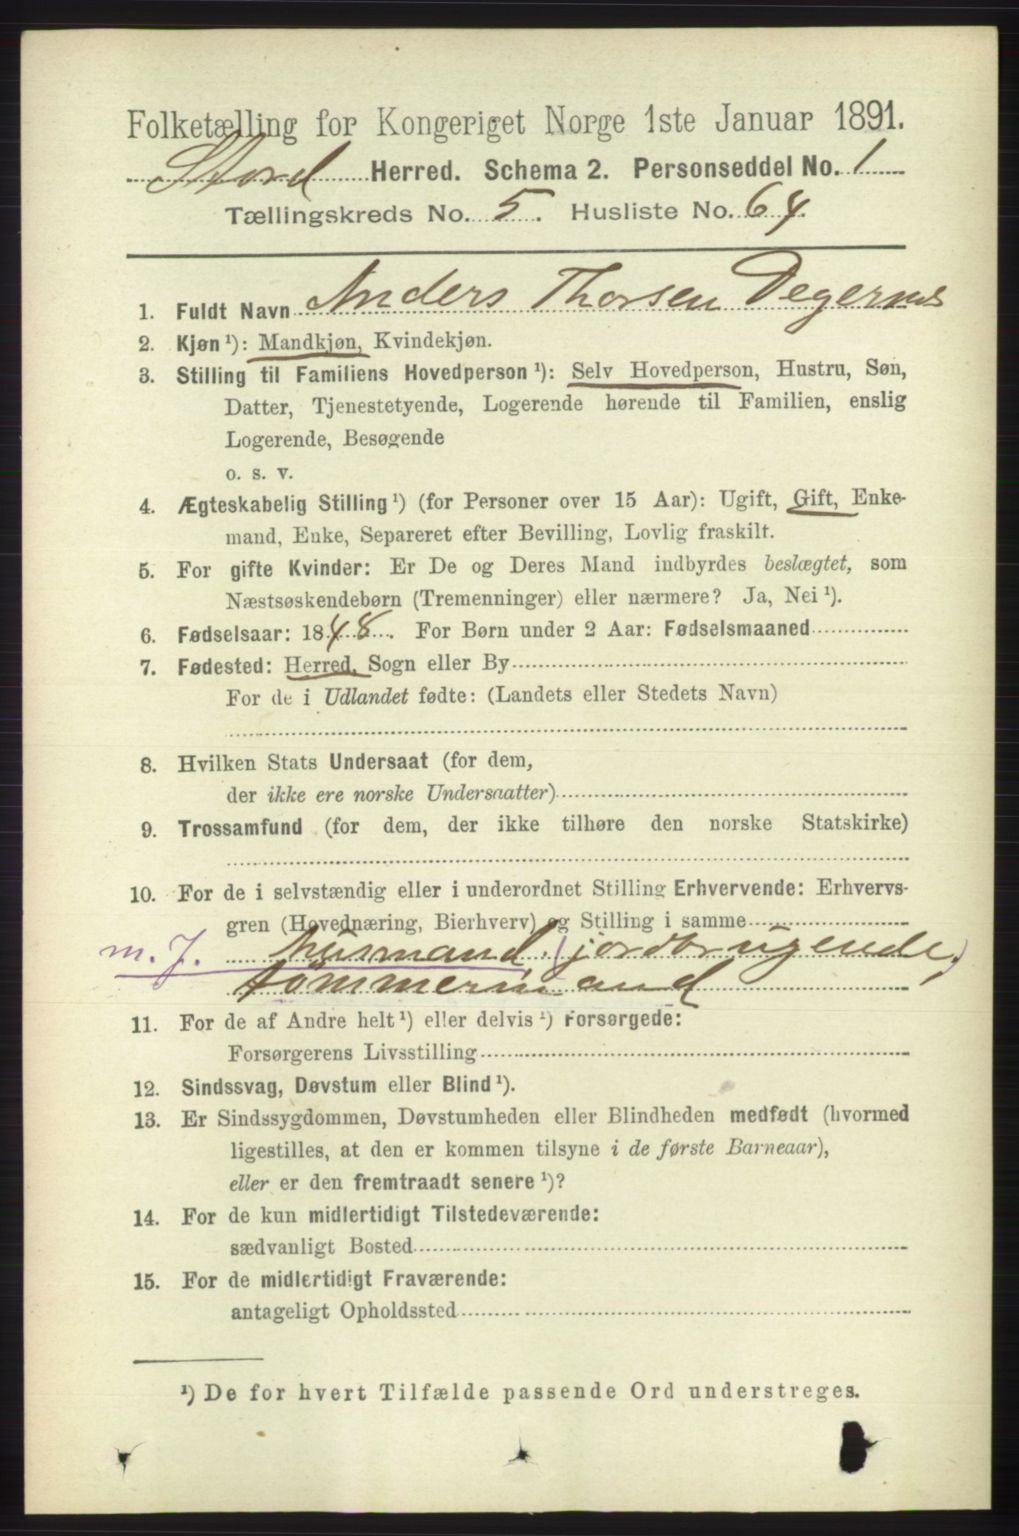 Folketælling for Kongeriget Norge 1ste Januar 1891.
Stord Herred. Schema 2. Personseddel No. 1
Tællingskreds No. 5. Husliste No. 64.
1. Fuldt Navn Anders Thorsen Degernes
2. Kjøn ¹): Mandkjøn, Kvindekjøn.
3. Stilling til Familiens Hovedperson ¹): Selv Hovedperson, Hustru, Søn,
Datter, Tjenestetyende, Logerende hørende til Familien, enslig
Logerende, Besøgende
o. s. v.
4. Ægteskabelig Stilling ¹) (for Personer over 15 Aar): Ugift, Gift, Enke-
mand, Enke, Separeret efter Bevilling, Lovlig fraskilt.
5. For gifte Kvinder: Er De og Deres Mand indbyrdes beslægtet, som
Næstsøskendebørn (Tremenninger) eller nærmere? Ja, Nei ¹).
6. Fødselsaar: 1848. For Børn under 2 Aar: Fødselsmaaned
7. Fødested: Herred, Sogn eller By
For de i Udlandet fødte: (Landets eller Stedets Navn)
8. Hvilken Stats Undersaat (for dem,
der ikke ere norske Undersaatter)
9. Trossamfund (for dem, der ikke tilhøre den norske Statskirke)
10. For de i selvstændig eller i underordnet Stilling Erhvervende: Erhvervs-
gren (Hovednæring, Bierhverv) og Stilling i samme
m. J. husmand. (jordbrugende)
tømmermand
11. For de af Andre helt ¹) eller delvis ¹) Forsørgede:
Forsørgerens Livsstilling
12. Sindssvag, Døvstum eller Blind ¹).
13. Er Sindssygdommen, Døvstumheden eller Blindheden medfødt (hvormed
ligestilles, at den er kommen tilsyne i de første Barneaar),
eller er den fremtraadt senere ¹)?
14. For de kun midlertidigt Tilstedeværende:
sædvanligt Bosted
15. For de midlertidigt Fraværende:
antageligt Opholdssted
¹) De for hvert Tilfælde passende Ord understreges.